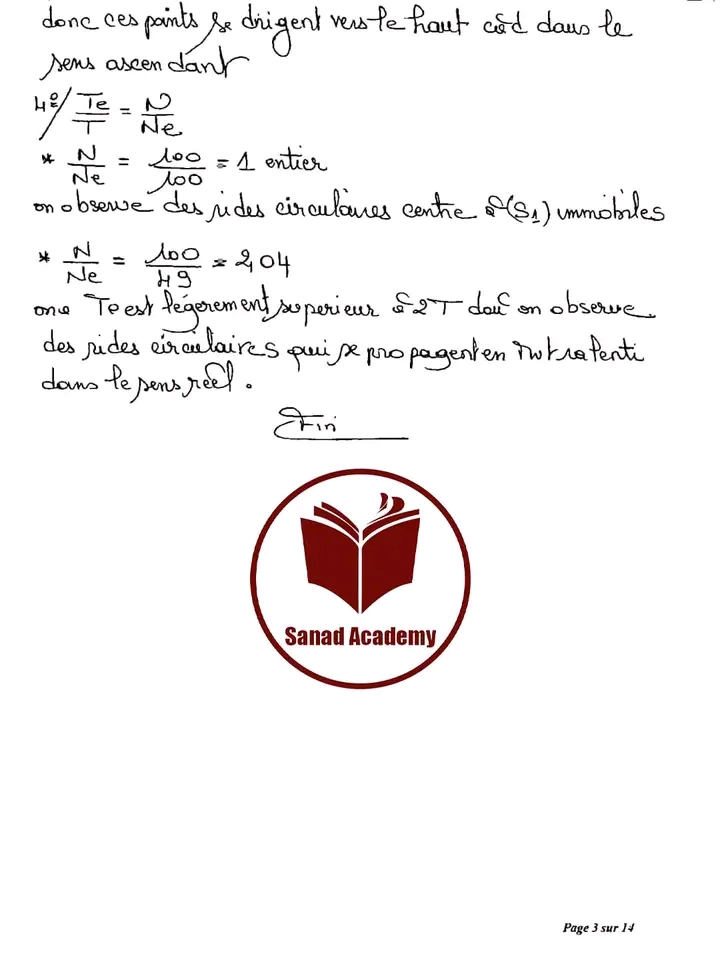 donc ces points se dirigent vers le haut càd dans le
sens ascendant
4°/ Te/T = N/Ne
* N/Ne = 100/100 = 1 entier
on observe des rides circulaires centre (S1) immobiles
* N/Ne = 100/49 = 2,04
Te est légerement superieur à 2T doù on observe
des rides circulaires qui se propagent en ralenti
dans le sens réel.
Fin
Sanad Academy
Page 3 sur 14